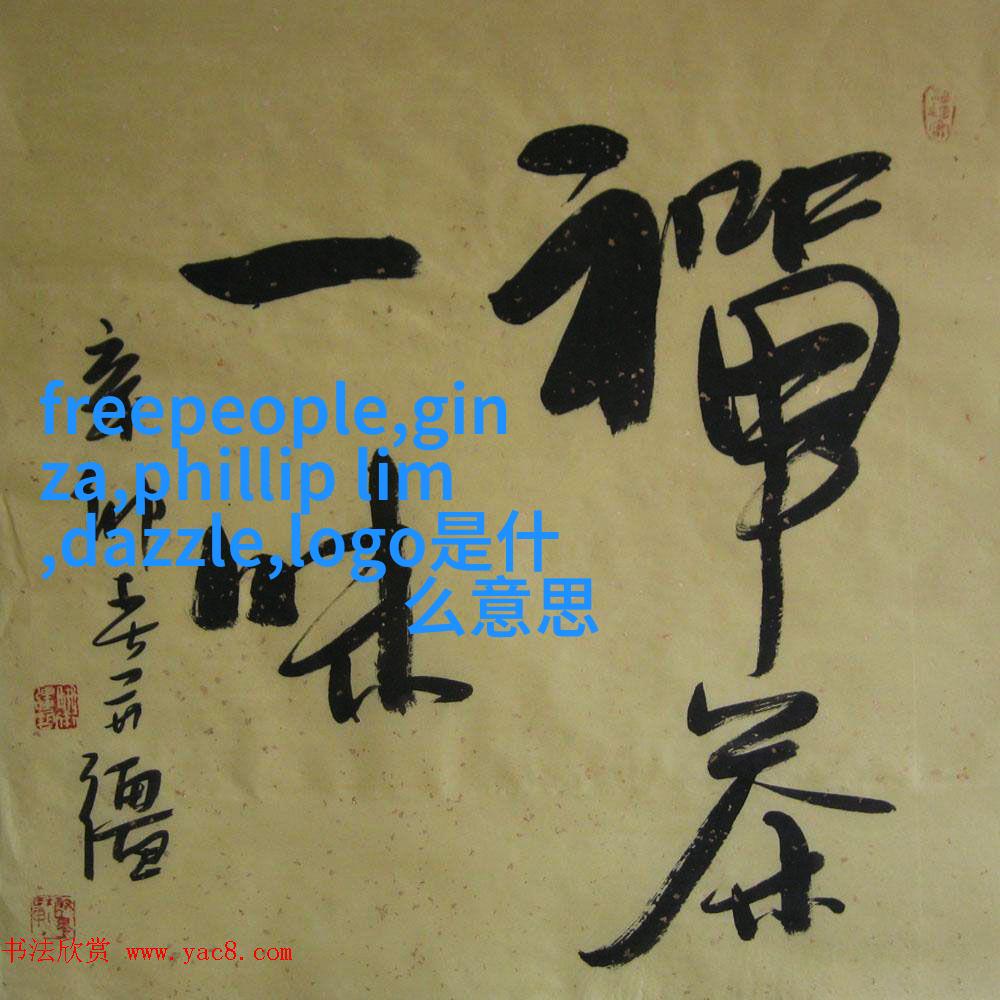 禪茶
一味
辛卯春
freepeople,gin
za,phillip lim
,dazzle,logo是什
么意思
书法欣赏 www.yac8.com